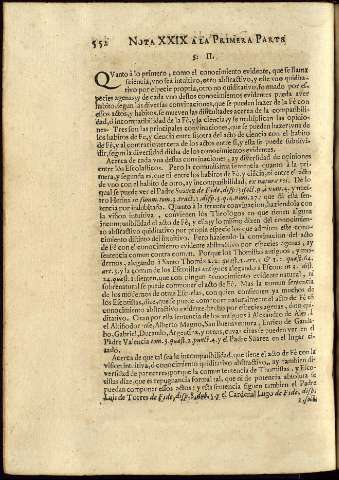 552 NOTA XXIX A LA PRIMERA PARTE
§. II.
QVanto à lo primero, como el conocimiento evidente, que se llama
sciencia, vno sea intuitivo, otro abstractivo, y este vno quiditativo
por especie propria, otro no quiditativo, formado por especies
agenas, y de cada vno destos conocimientos evidentes pueda aver
habitos, segun las diversas convinaciones, que se pueden hazer de la Fè con
estos actos, y habitos, se mueven las dificultades acerca de la compatibilidad,
ò incompatibilidad de la Fè, y la ciencia, y se multiplican las opiniones.
Tres son las principales convinaciones, que se pueden hazer
los habitos de Fè, y ciencia entre si; otra del acto de ciencia con el habito
de Fè, y al contrario; tercera de los actos entre si; y esta se puede subdividir,
segun la diversidad dicha de los conocimientos evidentes.
Acerca de cada vna destas convinaciones, ay diversidad de opiniones
entre los Escolasticos. Pero la comunissima sentencia quanto à la primera,
y segunda es, que ni entre los habitos de Fè, y ciencia, ni entre el acto
de vno con el habito de otro, ay incompatibilidad, ex natura rei. De lo
qual se puede ver el Padre Suarez de Fide, disp. 3. sect. 9. à num. 4. y nuestro
por indubitable. Quanto à la tercera convinacion, haziendola con
la vision intuitiva, convienen los Theologos en que tienen alguna
incompatibilidad el acto de Fè, y ella; y lo mismo dizen del conocimiento
abstractivo quiditativo por propia especie los que admiten este conocimiento
distinto del intuitivo. Pero haziendo la convinacion del acto
de Fè con el conocimiento evidente abstractivo por especies agenas, ay
sentencia comun contra comun. Porque los Thomistas antiguos, y modernos,
alegando à Santo Thomàs
y lo comun de los Escotistas antiguos alegando à Escoto
sienten, que con ningun conocimiento evidente natural, ni
sobrenatural se puede componer el acto de Fè. Mas la comun sentencia
de los modernos de otras Escuelas, con quien convienen ya muchos de
los Escotistas, dize, que se puede componer naturalmente el acto de Fè con
conocimiento abstractivo evidente, dado por especies agenas, que no es
quiditativo. Citan por esta sentencia de los antiguos à Alexandro de Ales,
Alberto Magno, San Buenaventura, Enrico de Gandavo,
Gabriel, Durando, Argentina, y otros, cuyas citas se pueden ver en el
Padre Valencia tom. 3. quæst. 1. punct. 4. y el Padre Suarez en el lugar citado.
Acerca de que tal sea la incompatibilidad, que tiene el acto de Fè con la
vision intuitiva, ò conocimiento quiditativo abstractivo, ay tambien diversidad
de pareceres; porque la comun sentencia de Thomistas, y Escotistas
dize, que es repugnancia formal tal, que ni de potencia absoluta se
puedan componer estos actos; y esta sentencia siguen tambien el Padre
Luis de Torres de Fide, disp. 8. dub. 3. y el Cardenal Lugo de Fide, disp.